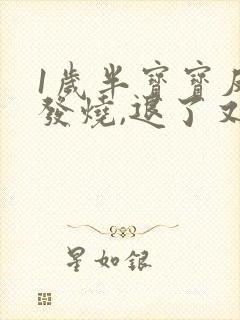 1歲半寶寶
發燒,退了又
星如銀